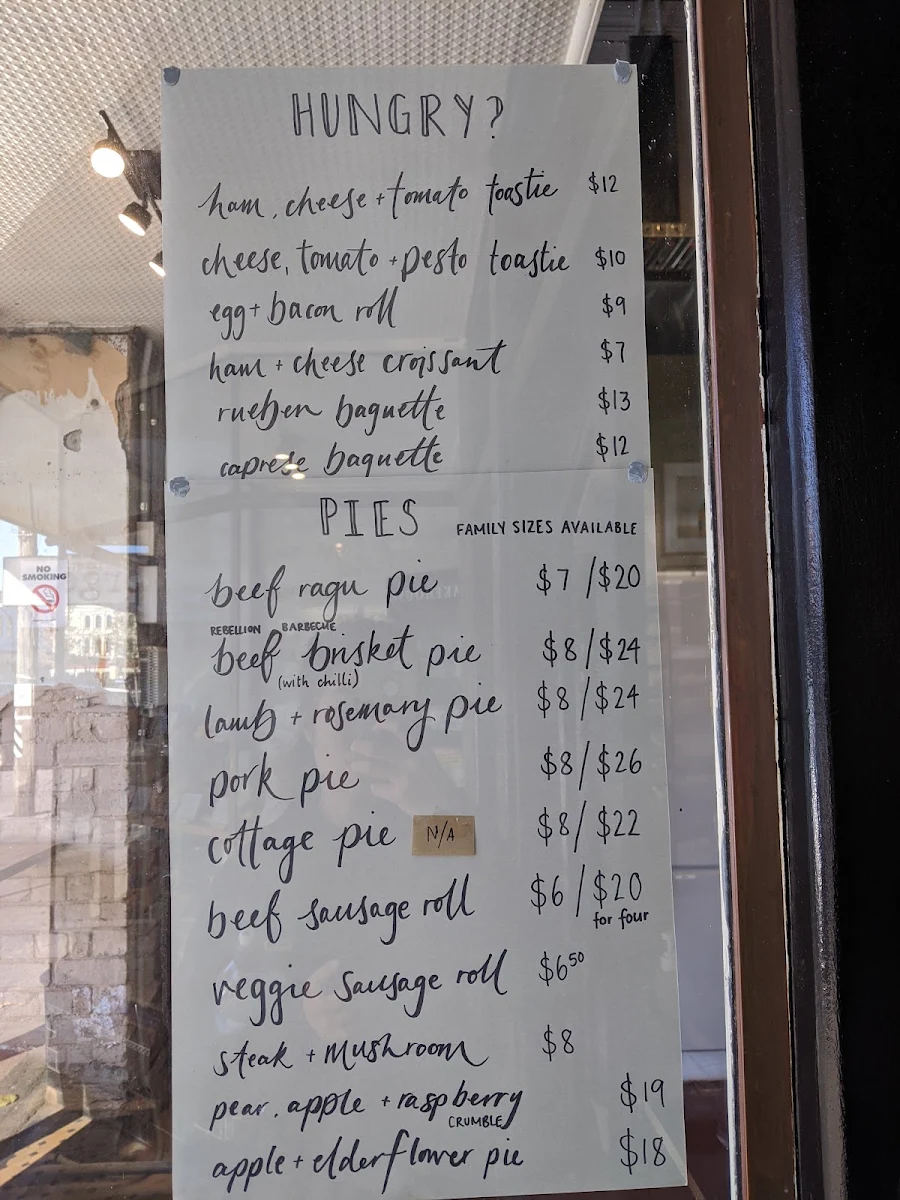 HUNGRY?
ham, cheese + tomato toastie $12
cheese, tomato + pesto toastie $10
egg + bacon roll $9
ham + cheese croissant $7
rueben baguette $13
caprese baguette $12
PIES FAMILY SIZES AVAILABLE
beef ragu pie $7 / $20
REBELLION BARBECUE
beef brisket pie $8 / $24
(with chilli)
lamb + rosemary pie $8 / $24
pork pie $8 / $26
cottage pie N/A $8 / $22
beef sausage roll $6 / $20
for four
veggie sausage roll $6⁵⁰
steak + mushroom $8
pear, apple + raspberry $19
CRUMBLE
apple + elderflower pie $18
NO
SMOKING